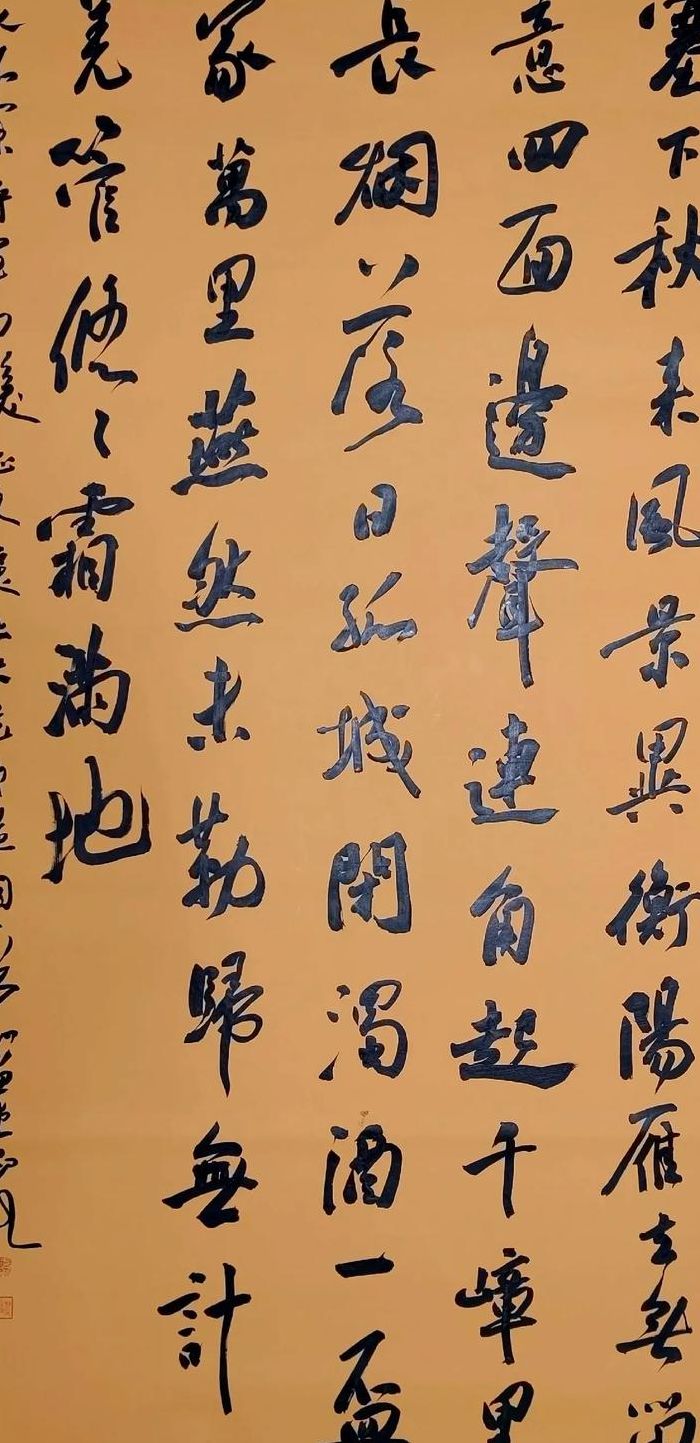 塞下秋来風景異衡陽雁去無留
意四面邊聲連角起千嶂里
長烟落日孤城閉濁酒一盃
家萬里燕然未勒歸無計
羌管悠々霜滿地